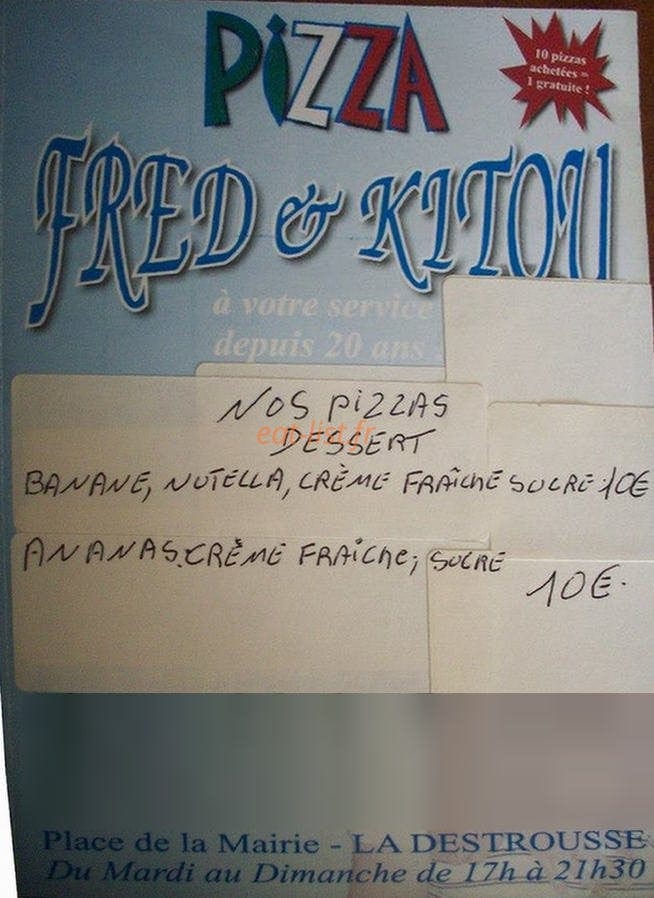 PIZZA
10 pizzas
achetées =
1 gratuite !
FRED & KITOU
à votre service
depuis 20 ans
NOS PIZZAS
eat-list.fr
DESSERT
BANANE, NUTELLA, CRÈME FRAÎCHE SUCRE 10€
ANANAS. CRÈME FRAÎCHE, SUCRE
10€.
Place de la Mairie - LA DESTROUSSE
Du Mardi au Dimanche de 17h à 21h30